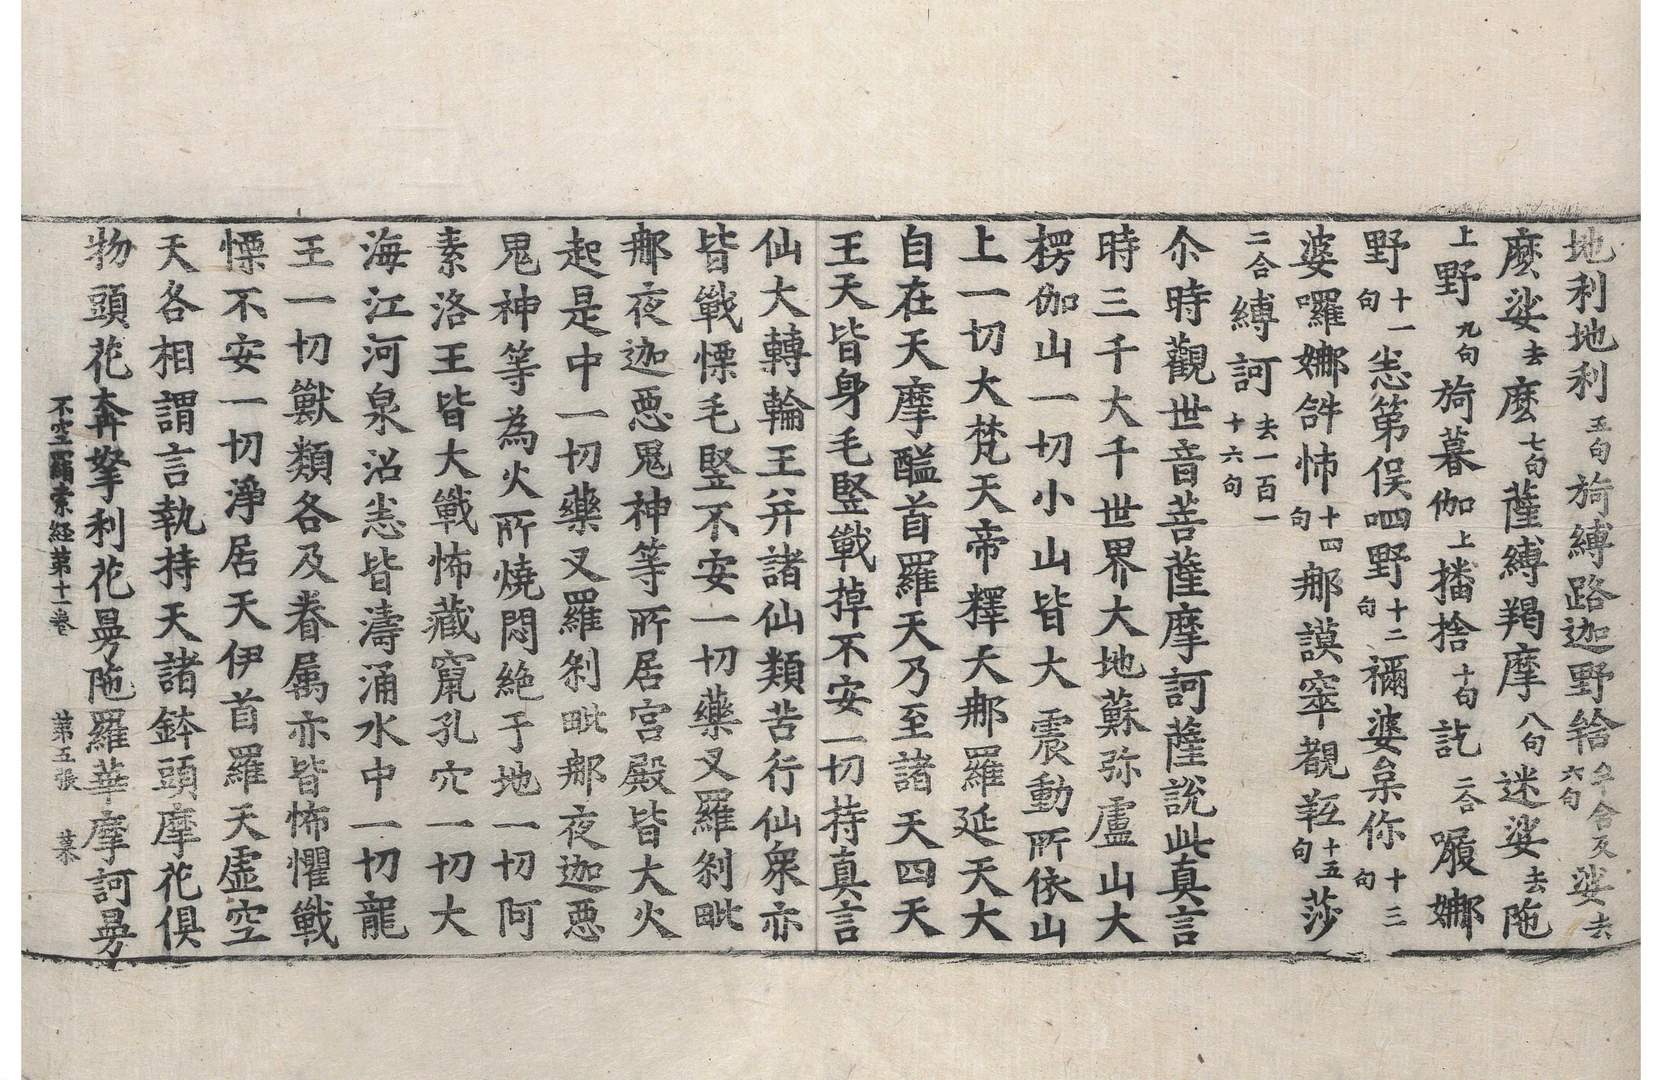 地利地利五句旖縛路迦野𤙖牟含反六句娑去
麼娑去麼七句薩縛羯摩八句迷娑去陁
上野九句旖暮伽上播捨十句訖二合囇娜
野十一句恙第俁呬野十二句禰婆枲你十三句
婆囉娜𧦬怖十四句那謨窣覩𦍕十五句莎
二合縛訶去一百一十六句
尒時觀世音菩薩摩訶薩說此真言
時三千大千世界大地蘇弥盧山大
楞伽山一切小山皆大震動所依山
上一切大梵天帝釋天那羅延天大
自在天摩醯首羅天乃至諸天四天
王天皆身毛竪戰掉不安一切持真言
仙大轉輪王并諸仙類苦行仙衆亦
皆戰慄毛竪不安一切藥叉羅剎毗
那夜迦惡鬼神等所居宮殿皆大火
起是中一切藥叉羅剎毗那夜迦惡
鬼神等為火所燒悶絕于地一切阿
素洛王皆大戰怖藏竄孔穴一切大
海江河泉沼恙皆濤涌水中一切龍
王一切獸類各及眷属亦皆怖懼戰
慄不安一切淨居天伊首羅天虛空
天各相謂言執持天諸鉢頭摩花俱
物頭花奔拏利花曼陁羅華摩訶曼
不空羂索經第十一卷 第五張 菉